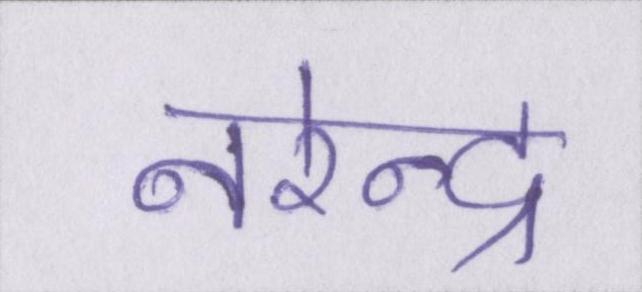 नरेन्द्र